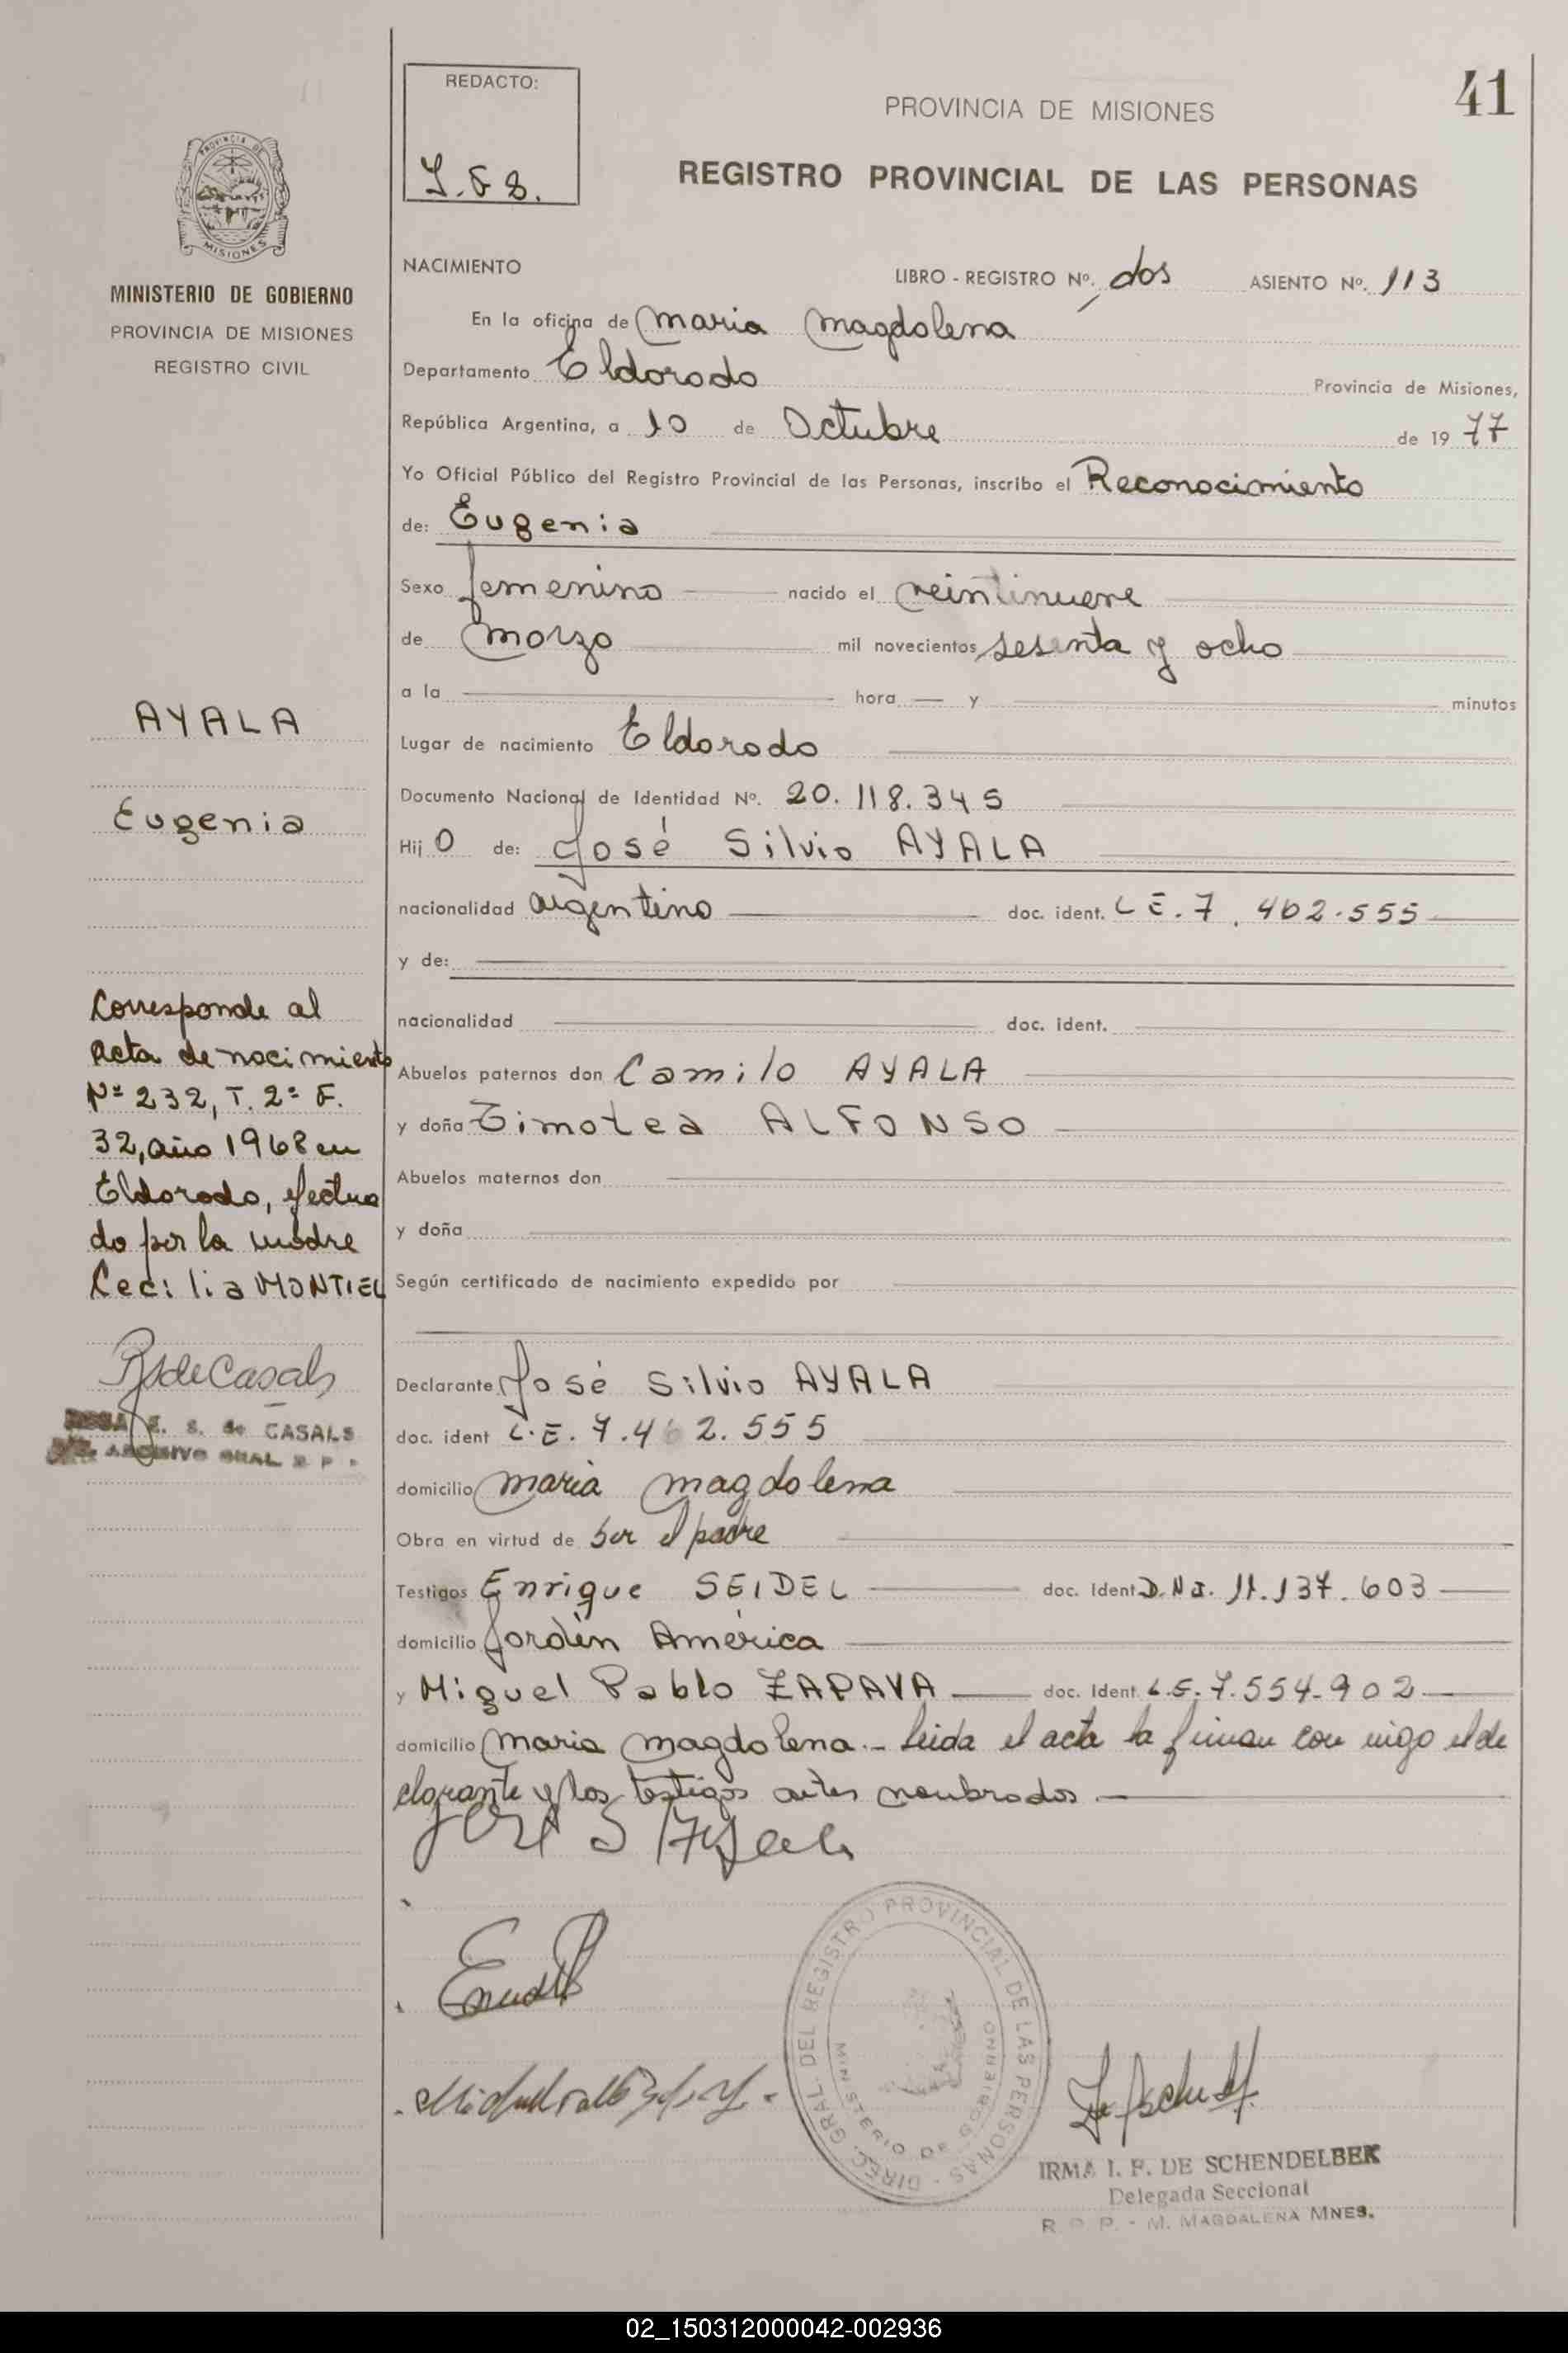 41
REDACTO:
PROVINCIA DE MISIONES
REGISTRO PROVINCIAL DE LAS PERSONAS
PROVINCIA DE
MISIONES
MINISTERIO DE GOBIERNO
PROVINCIA DE MISIONES
REGISTRO CIVIL
NACIMIENTO LIBRO - REGISTRO Nº. dos ASIENTO Nº. 113
En la oficina de Maria Magdalena
Departamento Eldorado Provincia de Misiones,
República Argentina, a 10 de Octubre de 1977
Yo Oficial Público del Registro Provincial de las Personas, inscribo el Reconocimiento
de: Eugenia
Sexo femenino nacido el veintinueve
de Marzo mil novecientos sesenta y ocho
a la hora y minutos
Lugar de nacimiento Eldorado
Documento Nacional de Identidad Nº. 20.118.345
Hij O de: José Silvio AYALA
nacionalidad argentino doc. ident. L E. 7.462.555
y de:
nacionalidad doc. ident.
Abuelos paternos don Camilo AYALA
y doña Timotea ALFONSO
Abuelos maternos don
y doña
Según certificado de nacimiento expedido por
Declarante José Silvio AYALA
doc. ident L.E. 7.462.555
domicilio Maria Magdalena
Obra en virtud de ser el padre
Testigos Enrique SEIDEL doc. Ident D.N.I. 11.137.603
domicilio Jordín América
y Miguel Pablo ZAPAVA doc. Ident. L.E. 7.554.902
domicilio Maria Magdalena.- Leida el acta la firman con migo el de
clarante y los testigos antes nombrados.—
AYALA
Eugenia
Corresponde al
Acta de nacimiento
Nº 232, T. 2º F.
32, año 1968 en
Eldorado, efectua
do por la madre
Cecilia MONTIEL
E. S. de CASALS
ARCHIVO GRAL R P
DIREC. GRAL. DEL REGISTRO PROVINCIAL DE LAS PERSONAS
MINISTERIO DE GOBIERNO
IRMA I. F. DE SCHENDELBEK
Delegada Seccional
R. P. P. - M. MAGDALENA MNES.
02_150312000042-002936